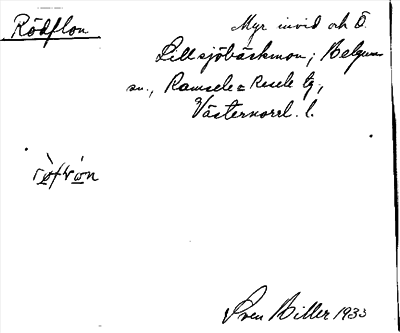 Rödflon
Myr invid och Ö
Lillsjöbäckmon; Belgums
sn., Ramsele = Resele tg,
Västernorrl. l.
Sven Biller 1933